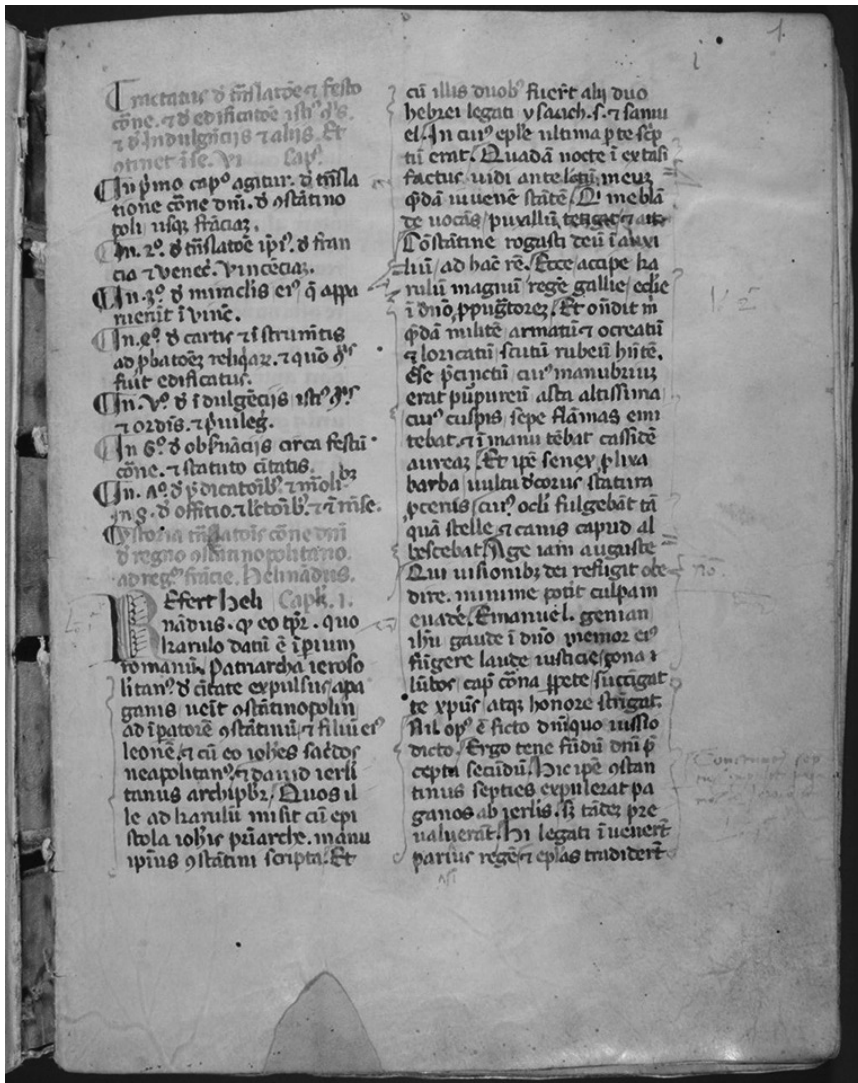 1.
i
Tractatus ð trāslatōe ⁊ festo
cōne. ⁊ ð edificatōe istiꝰ
⁊ ð Indulgēcijs ⁊ alijs. Et
ꝯtinet ī se. VI Capᵃ.
In pͥmo capᵒ agitur. ð trāsla
tione cōne dnī. ð ꝯstātino
poli usqꝫ frāciaꝫ.
In. 2ᵒ. ð trāslatōe ipīꝰ. ð fran
cia ⁊ venec̄. vincēciaꝫ.
In. 3ᵒ. ð miraclis eiꝰ q̄ appa
ruerūt ī vinc̄.
In. 4ᵒ. ð cartis ⁊ ī strumētis
ad ꝓbatōeꝫ reliqiaꝝ. ⁊ quō
fuit edificatus.
In. Vᵒ. ð īdulgēcijs istiꝰ
⁊ ordīs. ⁊ pͥuileḡ.
In 6ᵒ. ð obſuācijs circa festū
cōne. ⁊ statuto citatis.
In. ꝯ ð p̄dicatoībꝫ ⁊
In. 8. ð officio. ⁊ lc̄toībꝫ. ⁊ ī mīse.
Ystoria trāslatoīs cōne dnī
ð regno ꝯstātinopolitano.
ad regꝫ frācie. Helinādus.
REfert heli Capᵐ. 1.
nādus. ꝙ eo tp̄r. quo
karulo datū ē īperium
romanū. Patriarcha ieroso
litanꝰ ð citate expulsus apa
ganis uēit ꝯstātinopolim
ad īpatorē ꝯstātinū, ⁊ filiū eiꝰ
leonē. ⁊ cū eo ioh̄es sac̄dos
neapolitanꝰ. ⁊ dauid ierli
tanus archipb̄r. Quos il
le ad karulū misit cū epi
stola ioh̄is pͥarche. manu
ipīus ꝯstātini scripta. Et
cū illis duobꝰ fuer̄t alij duo
hebrei legati ysaach. s. ⁊ samu
el. In cuiꝰ epl̄e ultima ꝑte scͥp
tū erat. Quadā nocte ī extasi
factus uidi ante lectū meuꝫ
q̄dā iuuenē stātē. Qͥ me blā
de vocās, puxillū tetigit ⁊ ait.
Cōstātine rogasti deū ī auxi
liū, ad hāc rē. Ecce accipe ka
rulū magnū regē gallie, ecl̄ie
ī dnō, ꝓpugͣtoreꝫ. Et oñdit m̄
q̄dā militē armatū ⁊ ocreatū
⁊ loricatū, scutū rubeū hn̄tē.
ēse p̄cinctū, cuiꝰ manubriuꝫ
erat pūpureū, asta altissima
cuiꝰ cuspis, sepe flāmas emi
tebat. ⁊ ī manu tēbat cassidē
aureaꝫ. Et ip̄e senex ꝓlixa
barba, uultu ðcorus, statura
ꝓcerus, cuiꝰ ocl̄i fulgebāt tā
quā stelle, ⁊ canis capud al
bescebat. Age iam auguste
Qui uisionibꝫ dei refugit obe
dire. minime potit culpam
euad̄e. Emanuel. genian
ih̄u gaude ī dn̄o, memor eiꝰ
fūgere laude iusticie, zona ⁊
lūbos, capͣ cōna ꝑpete, succīgat
te xpūs, atqꝫ honore strīgat.
Nil opꝰ ē ficto dīniquo iussio
dicto. Ergo tene fūdū dnī p̄
cepta secūdū. Hic ip̄e ꝯstan
tinus septies expulerat pa
ganos ab ierlis. sꝫ tādeꝫ pre
ualuerāt. Hi legati īuener̄t
parius regē ⁊ eplās tradider̄t
nō.